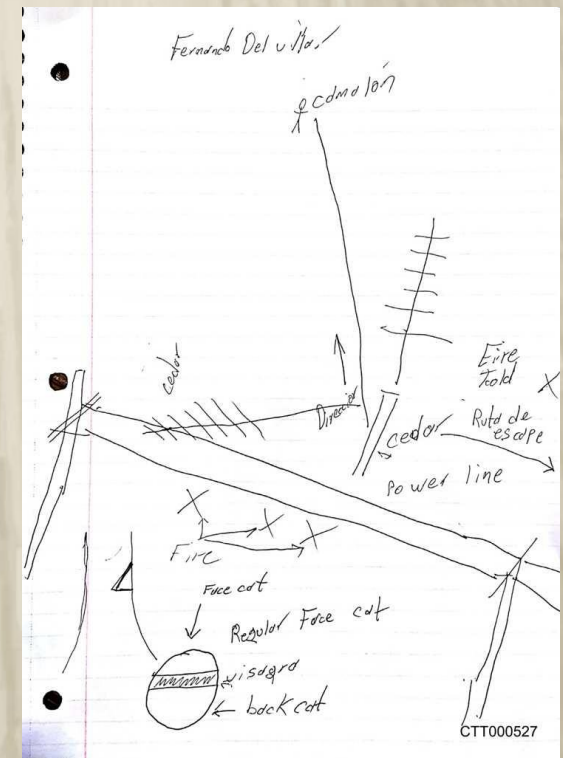 Fernando Del villar
camalón
cedar
Direccion
cedar
Fire
Told
Ruta de
escape
Power line
Fire
Face cat
Regular Face cat
visagra
back cat
CTT000527